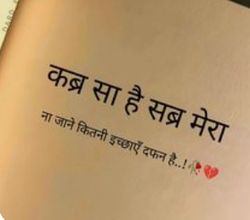 कब्र सा है सब्र मेरा
ना जाने कितनी इच्छाएँ दफन है..!🥀💔